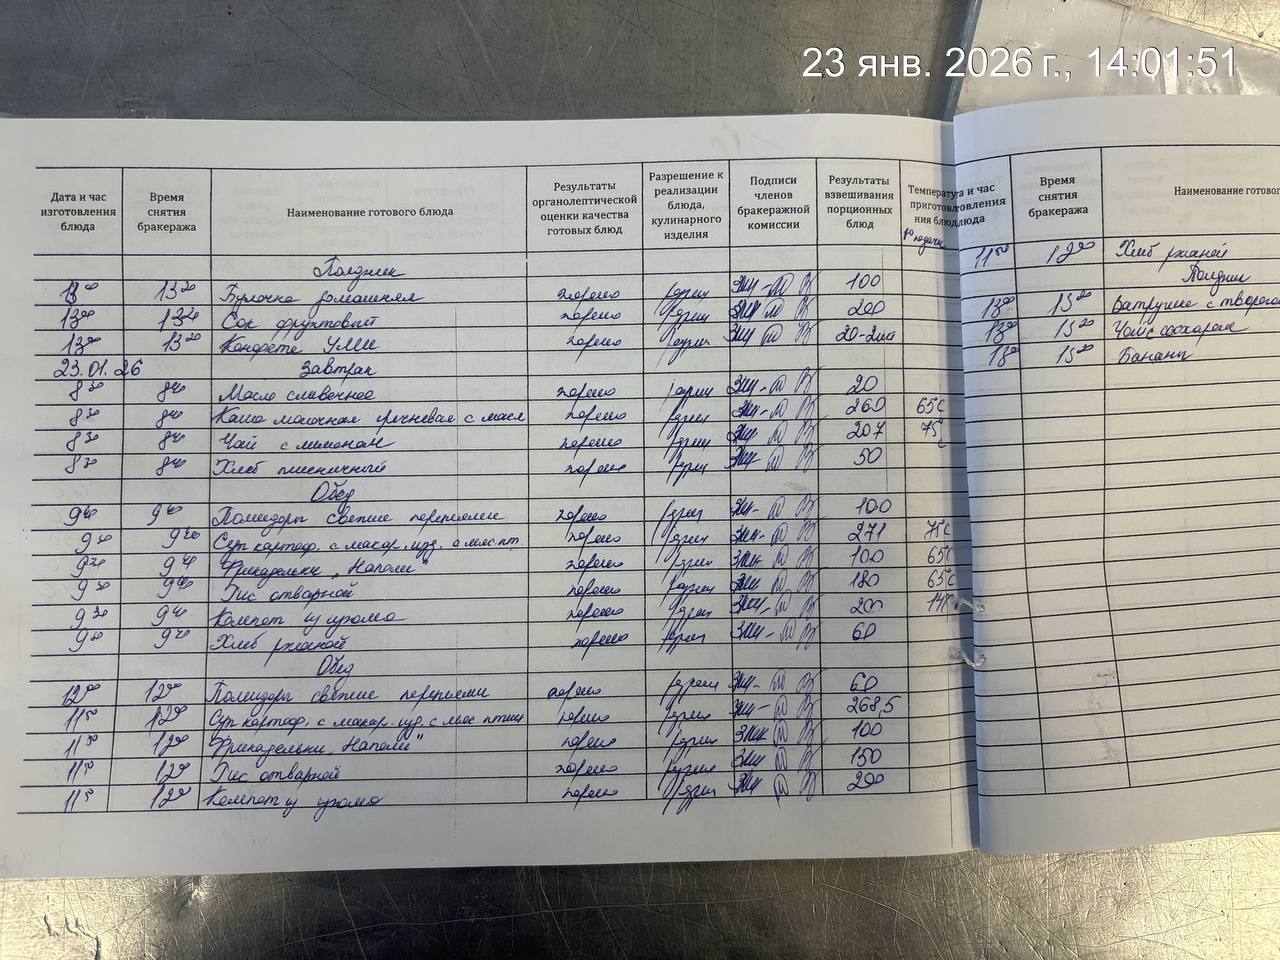 23 янв. 2026 г., 14:01:51
Дата и час изготовления блюда | Время снятия бракеража | Наименование готового блюда | Результаты органолептической оценки качества готовых блюд | Разрешение к реализации блюда, кулинарного изделия | Подписи членов бракеражной комиссии | Результаты взвешивания порционных блюд
Полдник
13 20 Булочка домашняя хорошо 100
13 00 13 20 Сок фруктовый хорошо 200
13 00 13 20 Конфета хорошо
23.01.26 Завтрак
8 30 8 40 Масло сливочное хорошо 20
8 30 8 40 Каша молочная гречневая с масл хорошо 260 65С
8 30 8 40 Чай с лимоном хорошо 207 75С
8 30 8 40 Хлеб пшеничный хорошо 50
Обед
9 40 Помидоры свежие порциями хорошо 100
9 30 9 40 Суп картоф. с макар. изд. с мяс. пт. хорошо 271 75С
9 30 9 40 Фрикадельки "Наполи" хорошо 100 65С
9 30 9 40 Рис отварной хорошо 180 65С
9 30 9 40 Компот из изюма хорошо 200 14С
9 40 Хлеб ржаной хорошо 60
Обед
12 00 12 00 Помидоры свежие порциями хорошо 60
11 50 12 00 Суп картоф. с макар. изд. с мяс. птицы хорошо 268,5
11 50 12 00 Фрикадельки "Наполи" хорошо 100
11 50 12 00 Рис отварной хорошо 150
11 50 12 00 Компот из изюма хорошо 200
Время снятия бракеража
11 50 12 00 Хлеб ржаной
Полдник
13 00 13 20 Ватрушка с творого
13 00 13 20 Чай с сахаром
13 00 13 20 Бананы